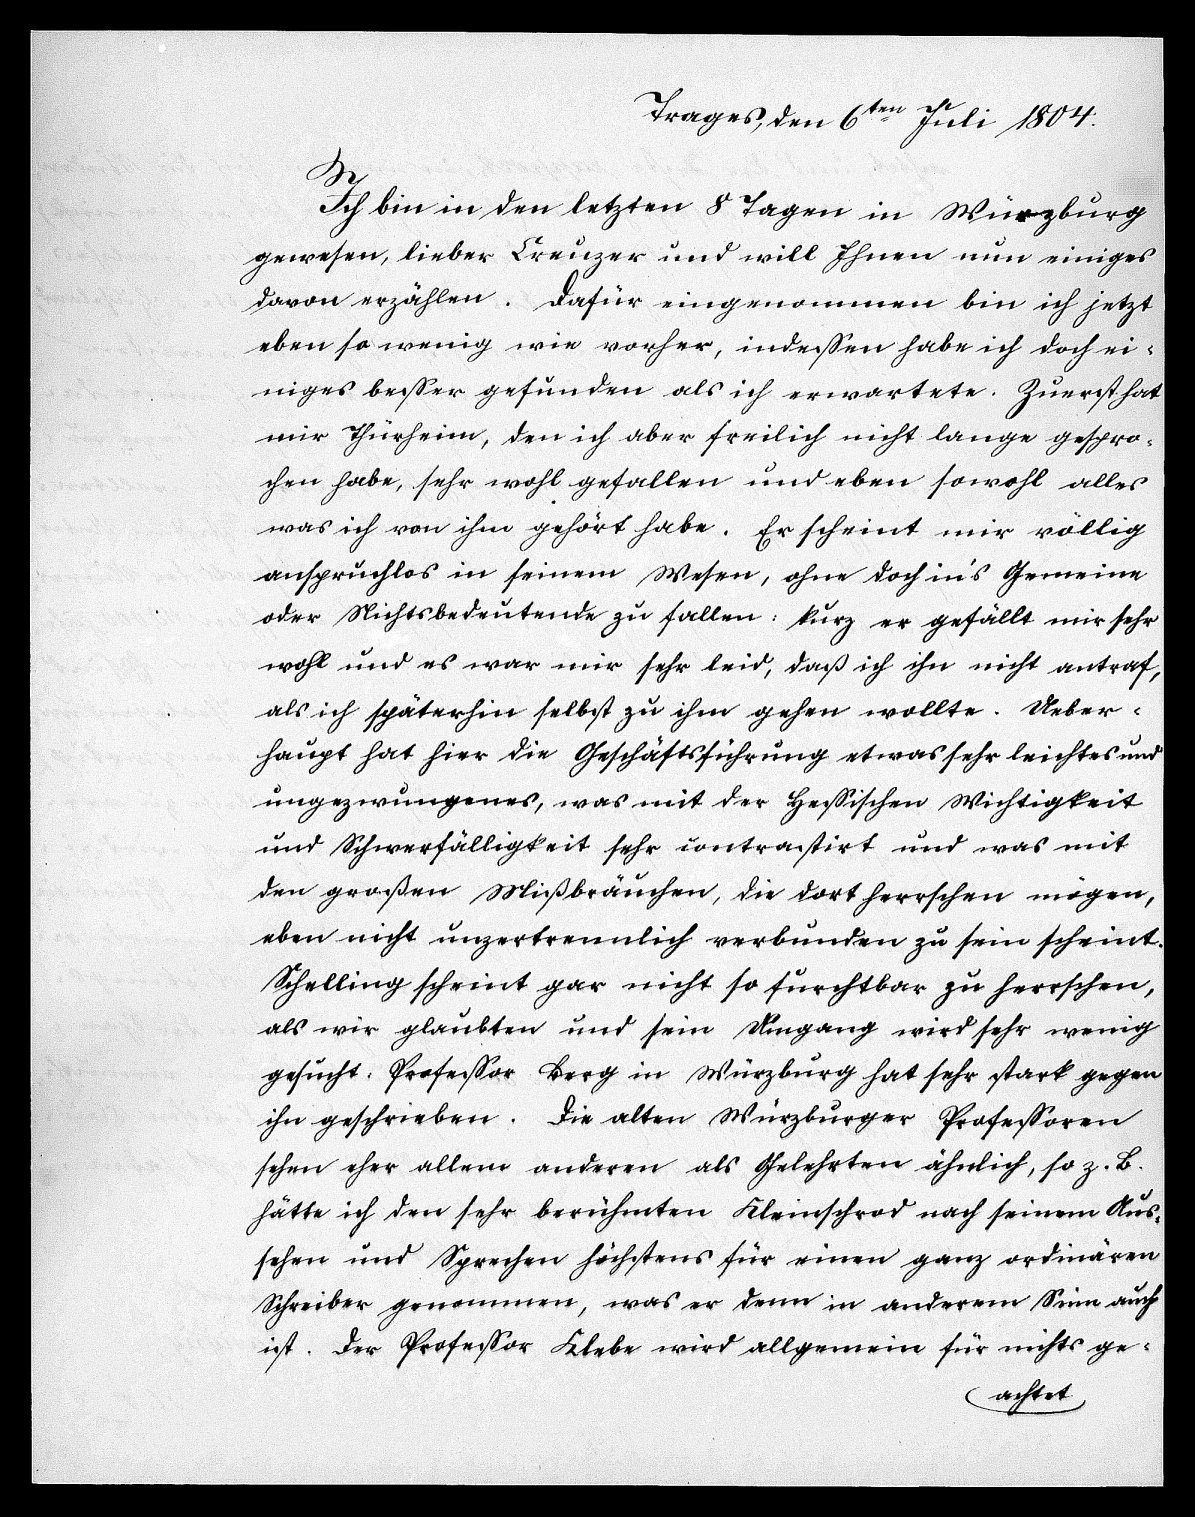 Trages, den 6ten Juli 1804.
Ich bin in den letzten 8 Tagen in Würzburg
gewesen, lieber Creuzer und will Ihnen nun einiges
davon erzählen. Dafür eingenommen bin ich jetzt
eben so wenig wie vorher, indessen habe ich doch ei-
niges besser gefunden als ich erwartete. Zuerst hat
mir Thürheim, den ich aber freilich nicht lange gespro-
chen habe, sehr wohl gefallen und eben sowohl alles
was ich von ihm gehört habe. Er scheint mir völlig
anspruchlos in seinem Wesen, ohne doch in's Gemeine
oder Nichtsbedeutende zu fallen: kurz er gefällt mir sehr
wohl und es war mir sehr leid, daß ich ihn nicht antraf,
als ich späterhin selbst zu ihm gehen wollte. Ueber-
haupt hat hier die Geschäftsführung etwas sehr leichtes und
ungezwungenes, was mit der Hessischen Wichtigkeit
und Schwerfälligkeit sehr contrastirt und was mit
den großen Mißbräuchen, die dort herrschen mögen,
eben nicht unzertrennlich verbunden zu sein scheint.
Schelling scheint gar nicht so furchtbar zu herrschen,
als wir glaubten und sein Umgang wird sehr wenig
gesucht. Professor Berg in Würzburg hat sehr stark gegen
ihn geschrieben. Die alten Würzburger Professoren
sehen eher allem anderen als Gelehrten ähnlich, so z. B.
hätte ich den sehr berühmten Kleinschrod nach seinem Aus-
sehen und Sprechen höchstens für einen ganz ordinären
Schreiber genommen, was er denn in anderem Sinn auch
ist. Der Professor Klebe wird allgemein für nichts ge-
achtet